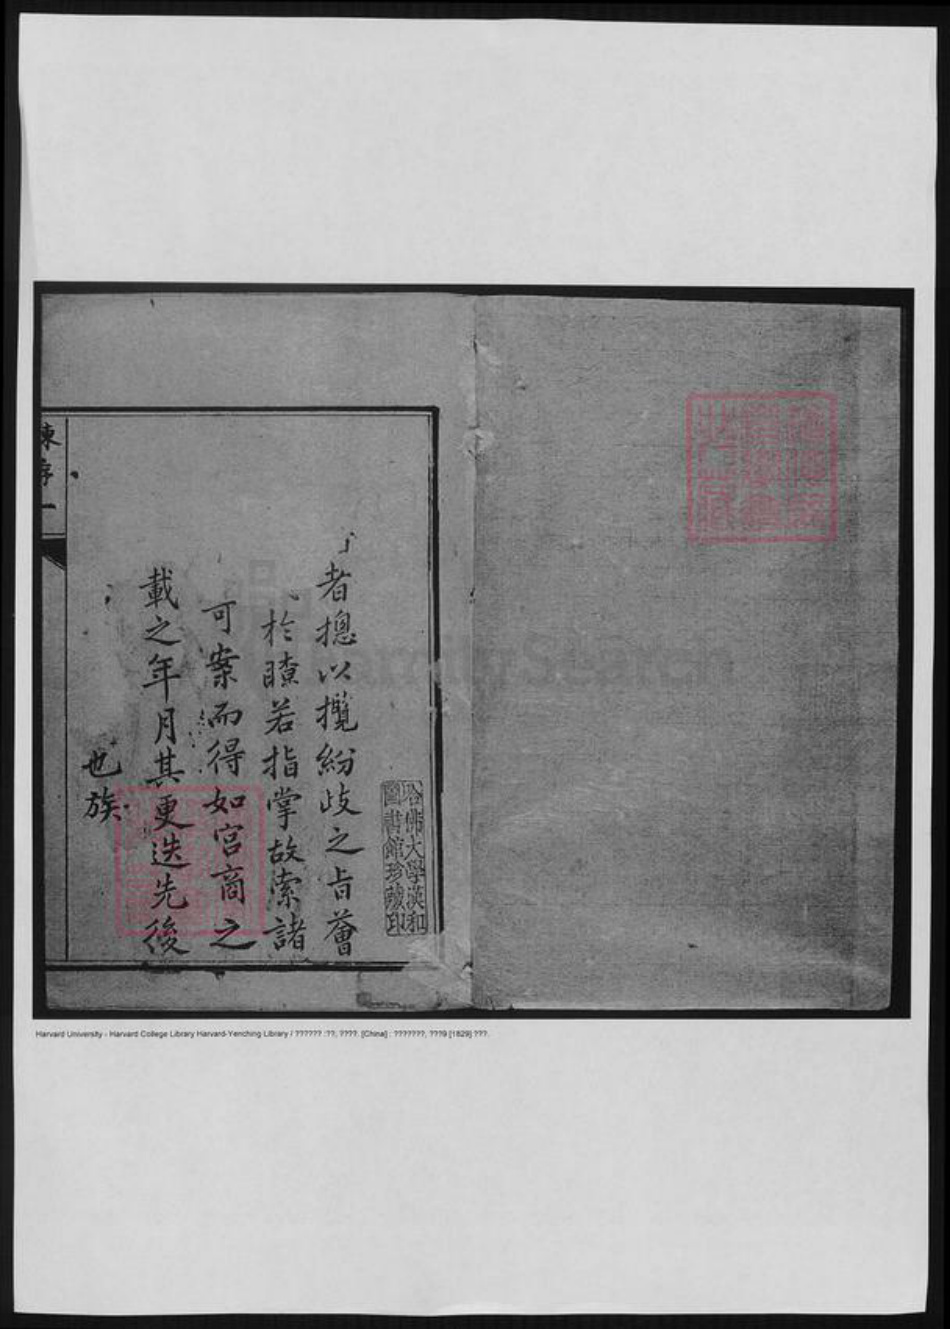 者揔以攬紛歧之旨薈
於瞭若指掌故索諸
可案而得如宮商之
載之年月其更迭先後
也族
哈佛大學漢和
圖書館珍藏印
FamilySearch
Harvard University - Harvard College Library Harvard-Yenching Library / ?????? :??, ????. [China] : ???????, ???9 [1829] ???.